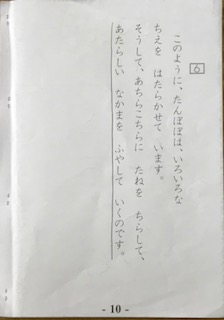 6
このように、たんぽぽは、いろいろな
ちえを はたらかせて います。
そうして、あちらこちらに たねを ちらして、
あたらしい なかまを ふやして いくのです。
- 10 -